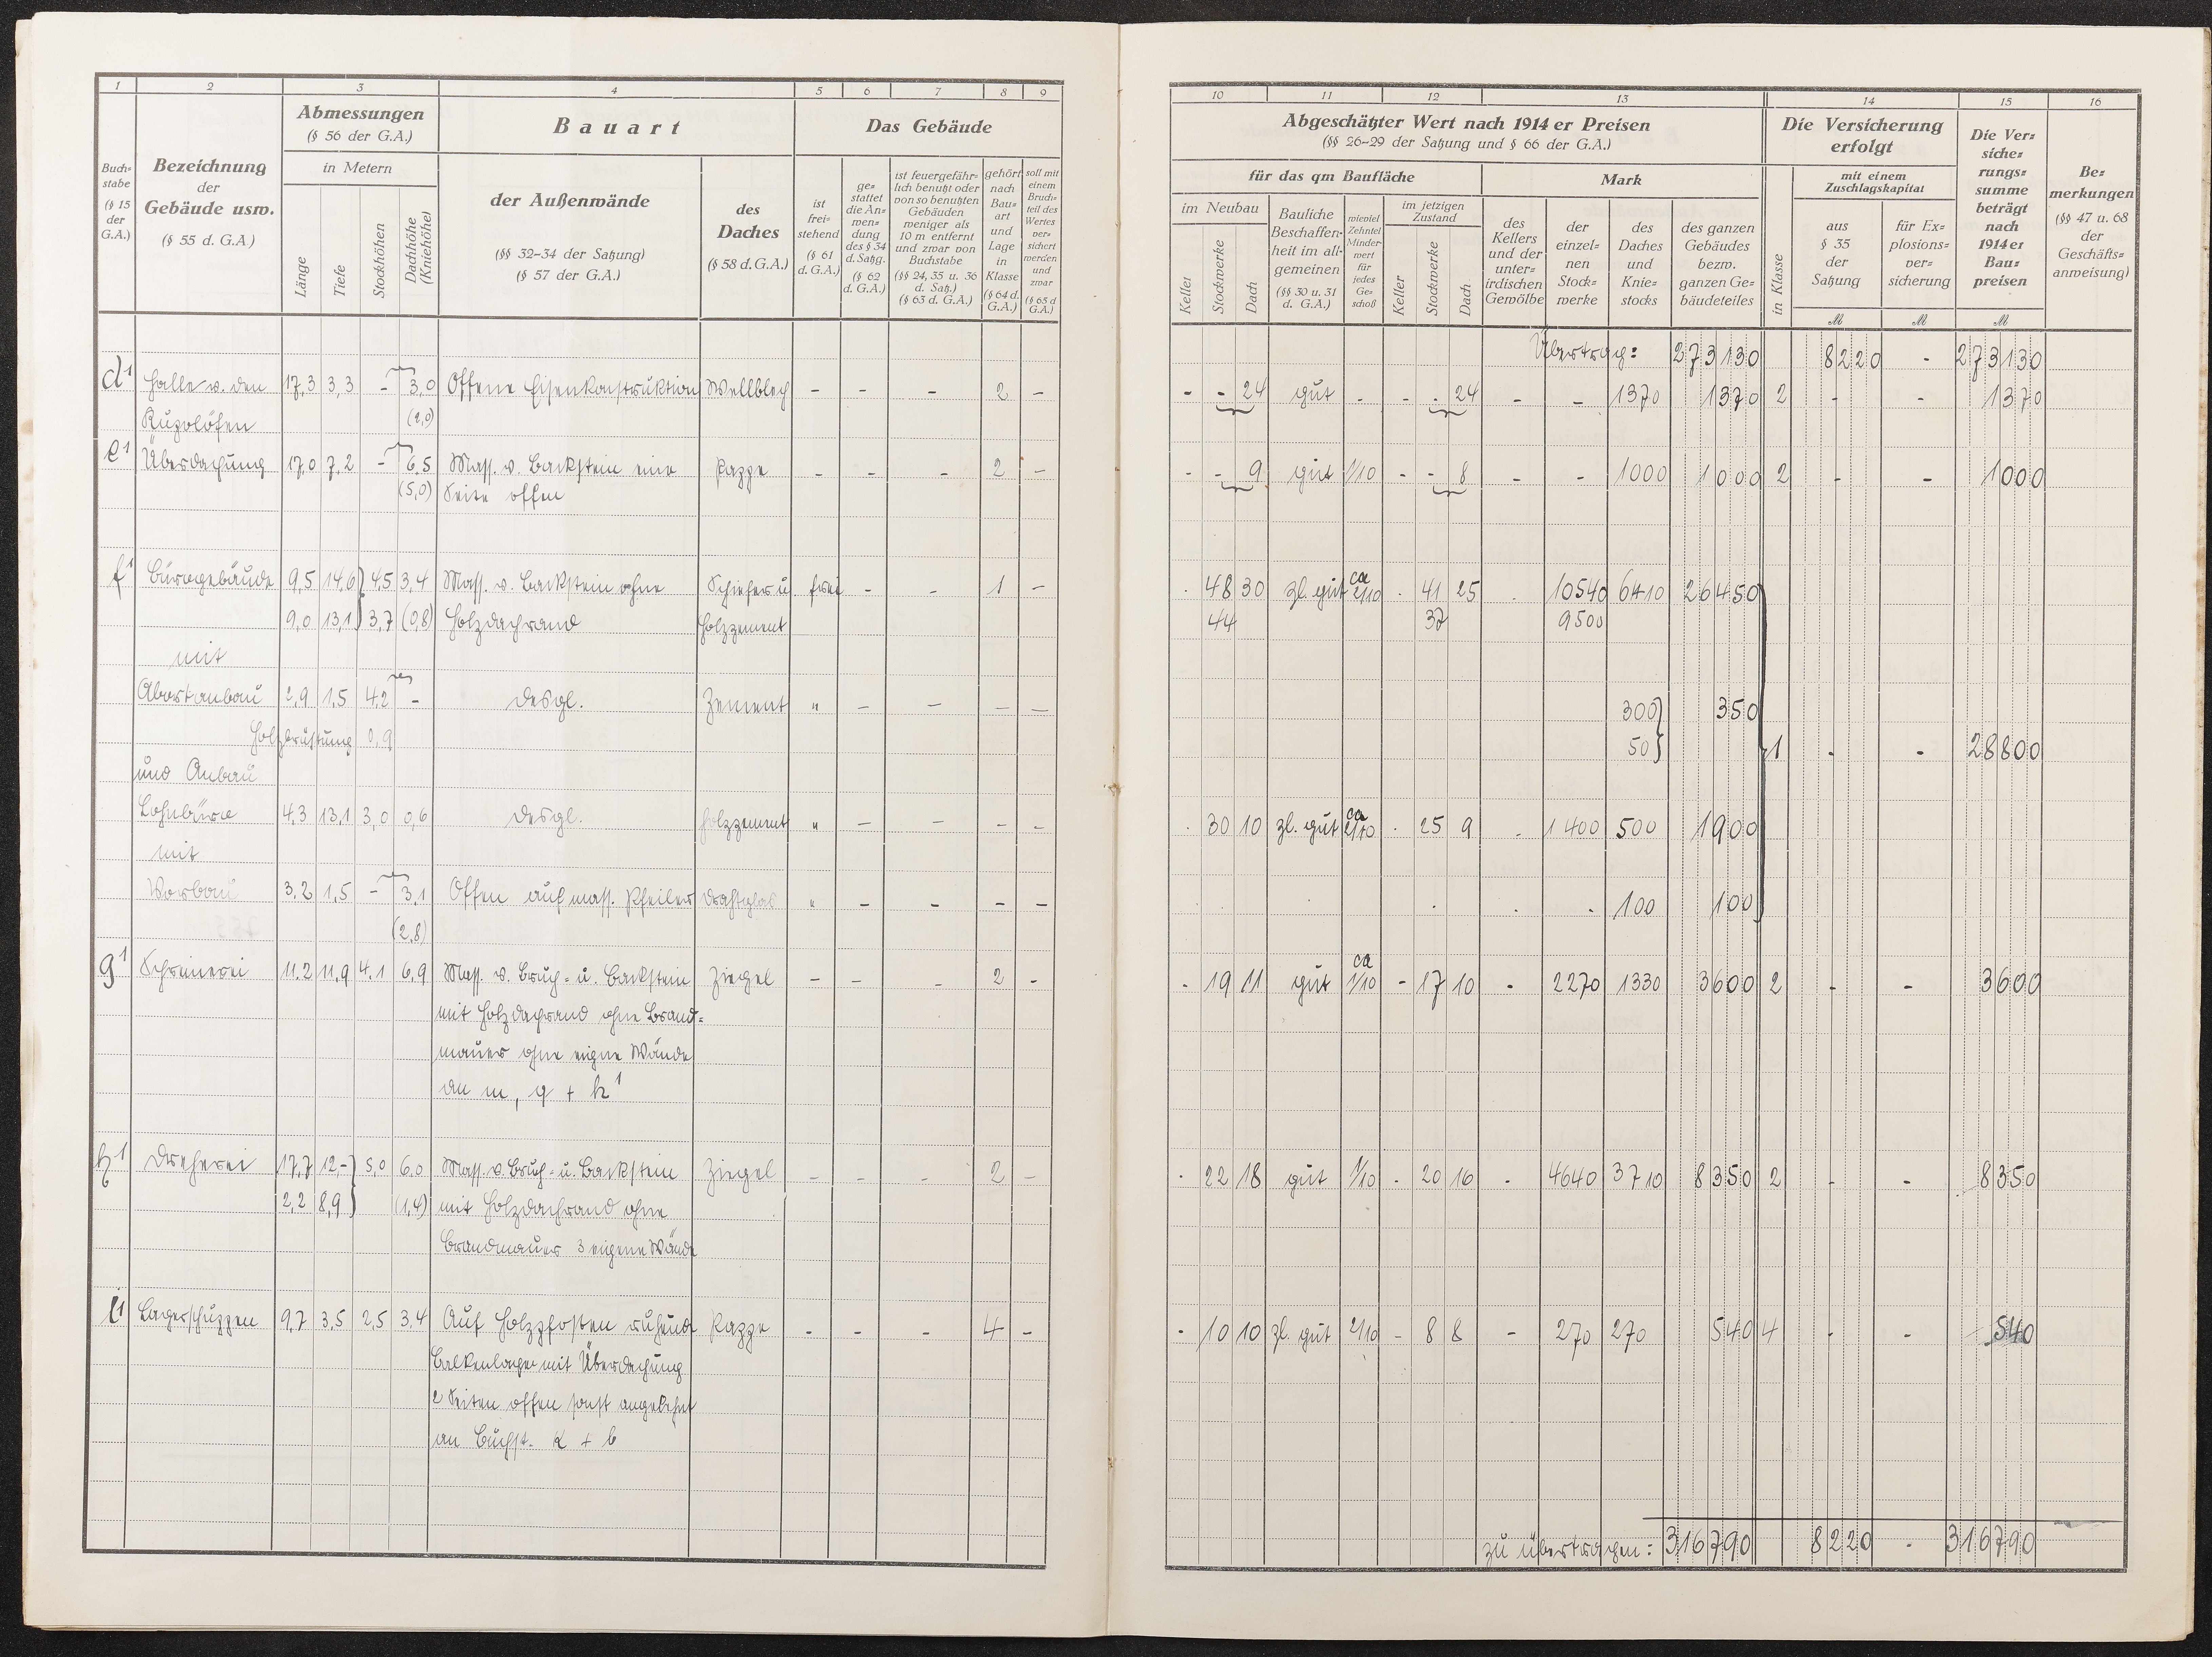 1 2 3 4 5 6 7 8 9
Buch=
stabe
(§ 15
der
G.A.)
Bezeichnung
der
Gebäude usw.
(§ 55 d. G.A.)
Abmessungen
(§ 56 der G.A.)
in Metern
Länge
Tiefe
Stockhöhen
Dachhöhe
(Kniehöhe)
Bauart
der Außenwände
(§§ 32–34 der Satzung)
(§ 57 der G.A.)
des
Daches
(§ 58 d. G.A.)
Das Gebäude
ist
frei=
stehend
(§ 61
d. G.A.)
ge=
stattet
die An=
wen=
dung
des § 34
d. Satzg.
(§ 62
d. G.A.)
ist feuergefähr=
lich benutzt oder
von so benutzten
Gebäuden
weniger als
10 m entfernt
und zwar von
Buchstabe
(§§ 24, 35 u. 36
d. Satz.)
(§ 63 d. G.A.)
gehört
nach
Bau=
art
und
Lage
in
Klasse
(§ 64 d.
G.A.)
soll mit
einem
Bruch=
teil des
Wertes
ver=
sichert
werden
und
zwar
(§ 65 d
G.A.)
d1 Halle v. den 17,3 3,3 - 3,0 Offene Eisenkonstruktion Wellblech - - - 2 -
Kupolöfen (2,0)
e1 Überdachung 17,0 7,2 - 6,5 Mass. v. Backstein eine Pappe - - - 2 -
(5,0) Seite offen
f1 Bürogebäude 9,5 14,6 4,5 3,4 Mass. v. Backstein ohne Schiefer u. frei - - 1 -
9,0 13,1 3,7 (0,8) Holzdachrand Holzzement
mit
Abortanbau 2,9 1,5 4,2 - desgl. Zement " - - - -
Holzbrüstung 0,9
und Anbau
Lohnbüro 4,3 13,1 3,0 0,6 desgl. Holzzement " - - - -
mit
Vorbau 3,2 1,5 - 3,1 Offen auf mass. Pfeiler Drahtglas " - - - -
(2,8)
g1 Schreinerei 11,2 11,9 4,1 6,9 Mass. v. Bruch= u. Backstein Ziegel - - - 2 -
mit Holzdachrand ohne Brand=
mauer ohne eigne Wände
an m, q + h1
h1 Dreherei 17,7 12,- 5,0 6,0 Mass. v. Bruch= u. Backstein Ziegel - - - 2 -
2,2 8,9 (1,4) mit Holzdachrand ohne
Brandmauer 3 eigene Wände
i1 Lagerschuppen 9,7 3,5 2,5 3,4 Auf Holzpfosten ruhende Pappe - - - 4 -
Balkenlage mit Überdachung
2 Seiten offen sonst angelehnt
an Buchst. + b
10 11 12 13 14 15 16
Abgeschätzter Wert nach 1914 er Preisen
(§§ 26–29 der Satzung und § 66 der G.A.)
für das qm Baufläche
im Neubau
Keller
Stockwerke
Dach
Bauliche
Beschaffen=
heit im all=
gemeinen
(§§ 30 u. 31
d. G.A.)
wieviel
Zehntel
Minder=
wert
für
jedes
Ge=
schoß
im jetzigen
Zustand
Keller
Stockwerke
Dach
Mark
des
Kellers
und der
unter=
irdischen
Gewölbe
der
einzel=
nen
Stock=
werke
des
Daches
und
Knie=
stocks
des ganzen
Gebäudes
bezw.
ganzen Ge=
bäudeteiles
Die Versicherung
erfolgt
in Klasse
mit einem
Zuschlagskapital
aus
§ 35
der
Satzung
M
für Ex=
plosions=
ver=
sicherung
M
Die Ver=
siche=
rungs=
summe
beträgt
nach
1914 er
Bau=
preisen
M
Be=
merkungen
(§§ 47 u. 68
der
Geschäfts=
anweisung)
Übertrag: 273130 8220 - 273130
- - 24 gut - - - 24 - - 1370 1370 2 - - 1370
- - 9 gut 1/10 - - 8 - - 1000 1000 2 - - 1000
- 48 30 zl. gut ca 2/10 - 41 25 - 10540 6410 26450
44 37 9500
300 350
50 1 - - 28800
- 30 10 zl. gut ca 2/10 - 25 9 - 1400 500 1900
- - - - - 100 100
- 19 11 gut ca 1/10 - 17 10 - 2270 1330 3600 2 - - 3600
- 22 18 gut 1/10 - 20 16 - 4640 3710 8350 2 - - 8350
- 10 10 zl. gut 2/10 - 8 8 - 270 270 540 4 - - 540
zu übertragen: 316790 8220 - 316790